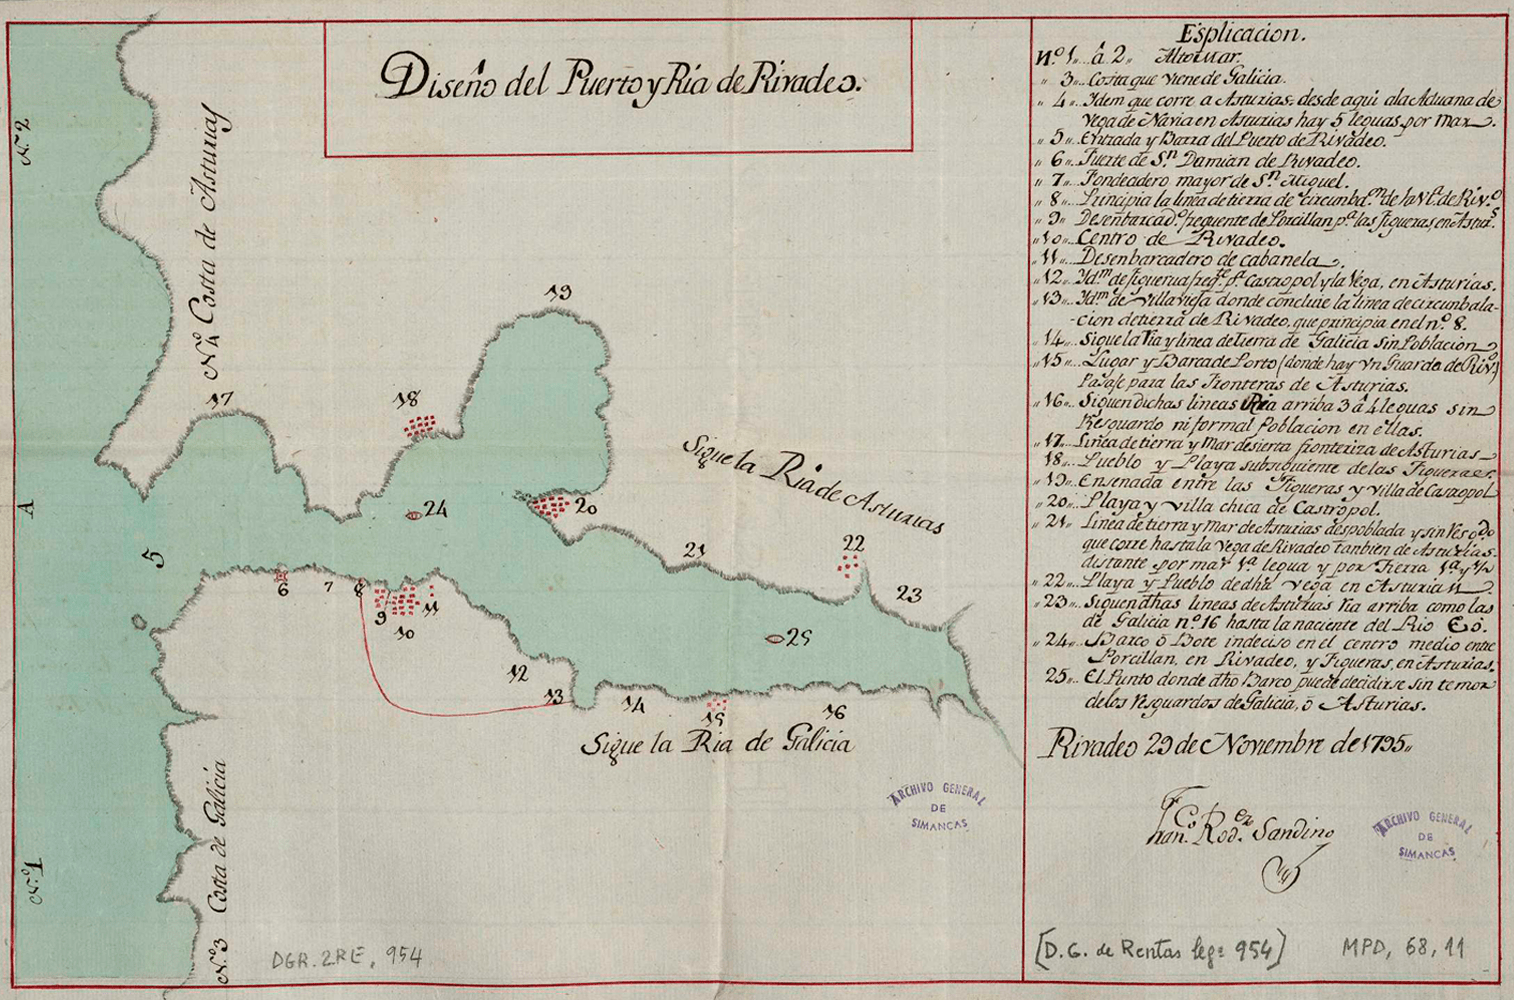 Diseño del Puerto y Ría de Rivadeo.
Esplicacion.
N.º 1.. â 2.. Alto Mar.
" 3.. Costa que viene de Galicia.
" 4.. Ydem que corre a Asturias: desde aqui ala Aduana de
Vega de Navia en Asturias hay 5 leguas por mar.
" 5.. Entrada y Barra del Puerto de Rivadeo.
" 6.. Fuerte de S.n Damian de Rivadeo.
" 7.. Fondeadero mayor de S.n Miguel.
" 8.. Principia la linea de tierra de circunba.on de la V.a de Riv.o
" 9.. Desenbarcad.o frequente de Porcillan p.a las Figueras, en Astur.s
" 10.. Centro de Rivadeo.
" 11.. Desenbarcadero de cabanela.
" 12.. Yd.m de figuerua freq.te p.a Castropol y la Vega, en Asturias.
" 13.. Yd.m de Villavieja donde concluie la linea de circunbala-
-cion de tierra de Rivadeo, que principia en el n.º 8.
" 14.. Sigue la Ria y linea de tierra de Galicia sin Poblacion
" 15.. Lugar y Barca de Porto (donde hay vn Guarda de Riv.o)
Pasaje para las Fronteras de Asturias.
" 16.. Siguen dichas lineas Ria arriba 3 â 4 leguas sin
Resguardo ni formal Poblacion en ellas.
" 17.. Linea de tierra y Mar desierta fronteriza de Asturias
18.. Pueblo y Playa subsiguiente de las Figueras.
" 19.. Ensenada entre las Figueras y villa de Castropol
" 20.. Playa y villa chica de Castropol.
" 21.. Linea de tierra y mar de Asturias despoblada y sin Resg.do
que corre hasta la Vega de Rivadeo tanbien de Asturias.
distante por mar 1.a legua y por tierra 1.a y ½
" 22.. Playa y Pueblo de dha Vega en Asturias
" 23.. Siguen dhas lineas de Asturias ria arriba como las
de Galicia n.º 16 hasta la naciente del Rio Eó.
" 24.. Barco ô Bote indeciso en el centro medio entre
Porcillan, en Rivadeo, y Figueras, en Asturias.
25.. El Punto donde dho Barco puede decidirse sin temor
de los resguardos de Galicia, ô Asturias.
Rivadeo 29 de Noviembre de 1795..
Fran.co Rod.ez Sandino
N.º 2
N.º 4 Costa de Asturias
17
18
19
20
24
A
5
Sigue la Ria de Asturias
21
22
23
25
6
7
8
9
10
11
12
13
14
15
16
Sigue la Ria de Galicia
N.º 1
N.º 3 Costa de Galicia
ARCHIVO GENERAL
DE
SIMANCAS
ARCHIVO GENERAL
DE
SIMANCAS
DGR. 2RE, 954
[D. G. de Rentas legº 954]
MPD, 68, 11